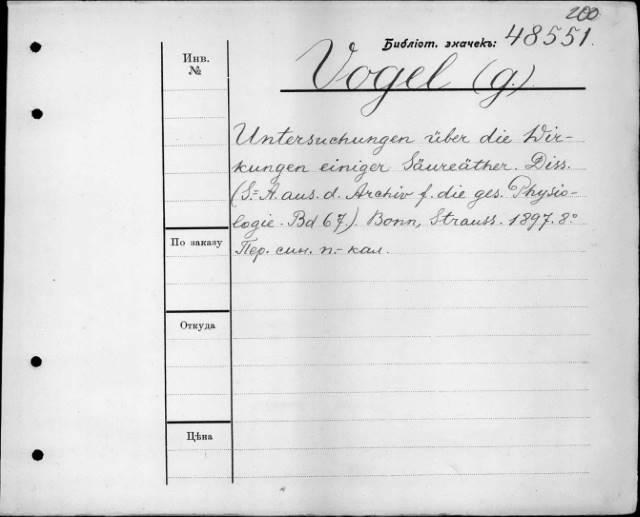 200
Библіот. значекъ: 48551.
Инв. №
Vogel (G.)
Untersuchungen über die Wir-
kungen einiger Säureäther. Diss.
(S=A. aus. d. Archiv f. die ges. Physio-
logie. Bd 67.) Bonn, Strauss. 1897. 8°
По заказу
Пер. син. п.-кал.
Откуда
Цѣна